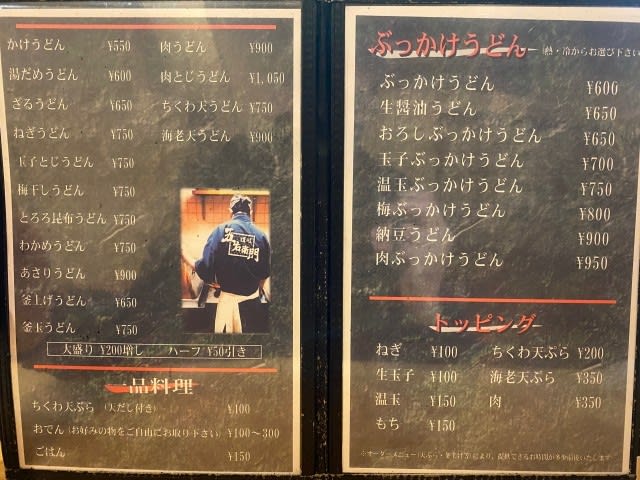 かけうどん ¥550
湯だめうどん ¥600
ざるうどん ¥650
ねぎうどん ¥750
玉子とじうどん ¥750
梅干しうどん ¥750
とろろ昆布うどん ¥750
わかめうどん ¥750
あさりうどん ¥900
釜上げうどん ¥650
釜玉うどん ¥750
肉うどん ¥900
肉とじうどん ¥1,050
ちくわ天うどん ¥750
海老天うどん ¥900
五右衛門
大盛り ¥200増し ハーフ ¥50引き
一品料理
ちくわ天ぷら (天だし付き) ¥400
おでん (お好みの物をご自由にお取り下さい) ¥100〜300
ごはん ¥150
ぶっかけうどん (熱・冷からお選び下さい
ぶっかけうどん ¥600
生醤油うどん ¥650
おろしぶっかけうどん ¥650
玉子ぶっかけうどん ¥700
温玉ぶっかけうどん ¥750
梅ぶっかけうどん ¥800
納豆うどん ¥900
肉ぶっかけうどん ¥950
トッピング
ねぎ ¥100
生玉子 ¥100
温玉 ¥150
もち ¥150
ちくわ天ぷら ¥200
海老天ぷら ¥350
肉 ¥350
※オーダーメニュー(天ぷら・釜上げ等)により、提供できるお時間が多少前後いたします